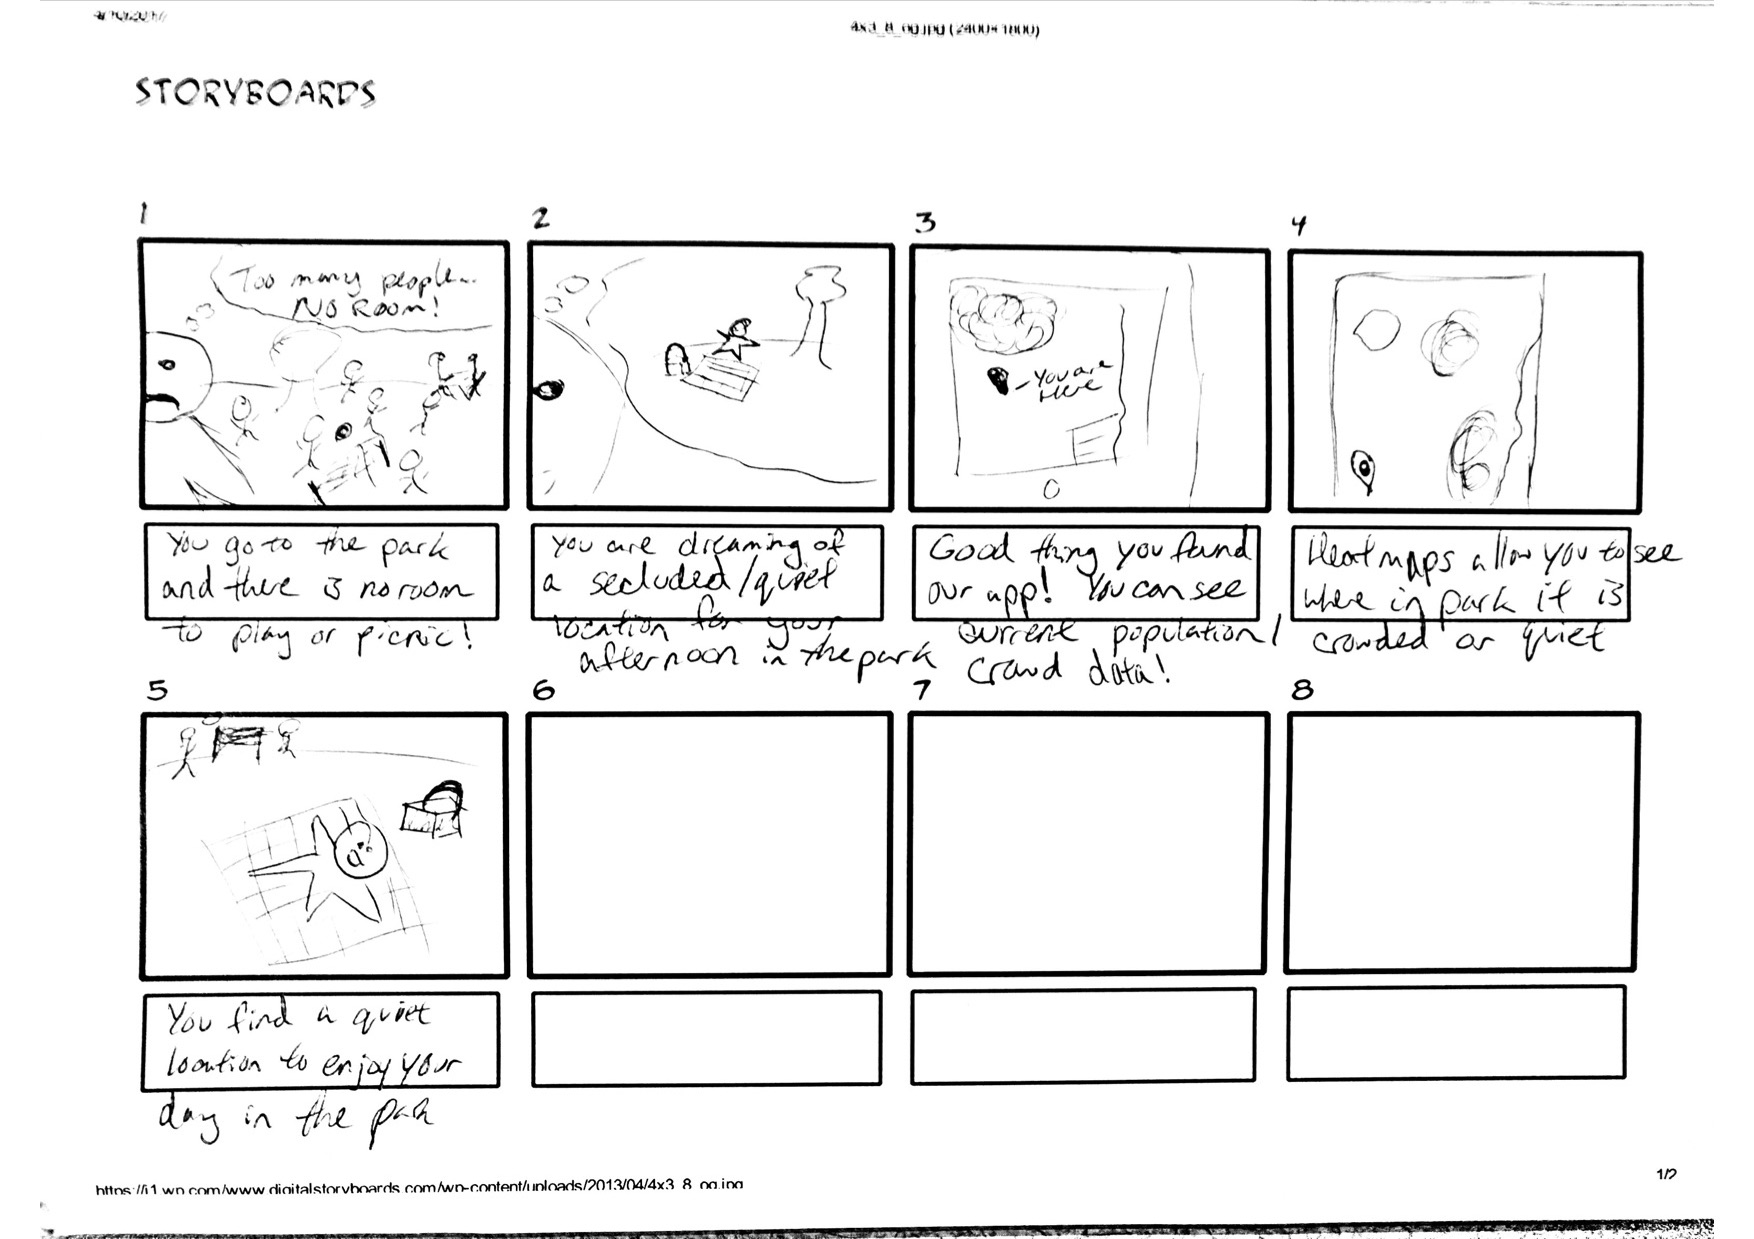 4x3_8_og.jpg (2400×1800)
STORYBOARDS
1
2
3
4
Too many people...
NO ROOM!
You are
Here
You go to the park
and there is no room
to play or picnic!
you are dreaming of
a secluded/quiet
location for your
afternoon in the park
Good thing you found
our app! You can see
current population/
crowd data!
Heat maps allow you to see
where in park it is
crowded or quiet
5
6
7
8
You find a quiet
location to enjoy your
day in the park
https://i1.wp.com/www.digitalstoryboards.com/wp-content/uploads/2013/04/4x3_8_og.jpg
1/2